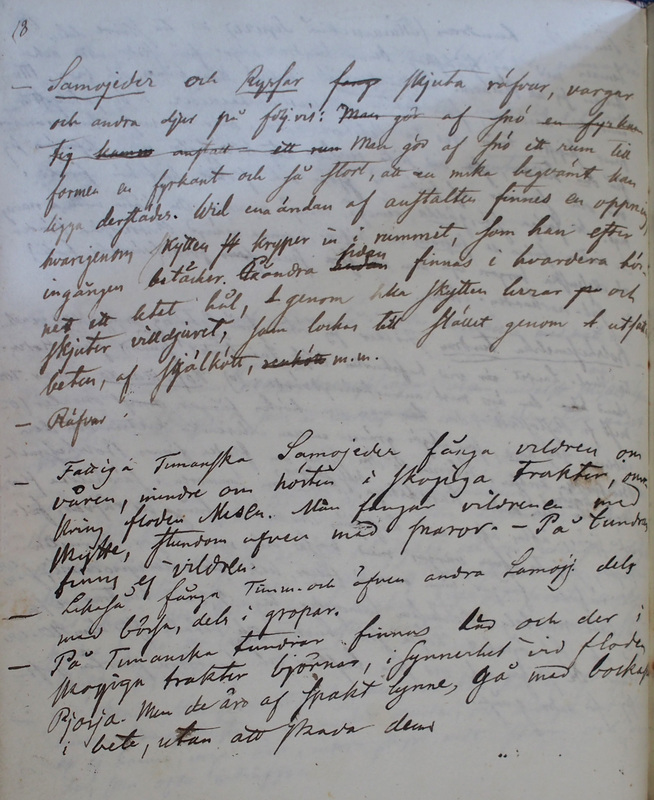 18
— Samojeder och Ryssar fång skjuta räfvar, vargar
och andra djur på följ. vis: Man gör af snö en fyrkan
tig Man gör af snö ett rum till
formen en fyrkant och så stort, att en mska beqvämt kan
ligga derstädes. Wid ena ändan af anstalten finnes en öppning
hvarigenom skytten kryper in i rummet, som han efter
ingången betäcker. På andra sidan finnas i hvardera hör-
net ett litet hål, genom hka skytten lurar och
skjuter villdjuret, som lockas till stället genom utsatt
beten, af själkött, renkött m.m.
— Räfvar
— Fattiga Timanska Samojeder fånga vildren om
våren, mindre om hösten i skogiga trakter, om-
kring floden Mesen. Man fångar vildrenen med
skytte, stundom äfven med snaror. — På tundran
finns ej vildren.
— Likaså fånga Timan. och äfven andra Samoj. dels
med bössa, dels i gropar.
— På Timanska tundran finnas här och der i
skogiga trakter björnar, i synnerhet vid floden
Pjosja. Men de äro af spakt lynne, gå med boskap
i bete, utan att skada dem